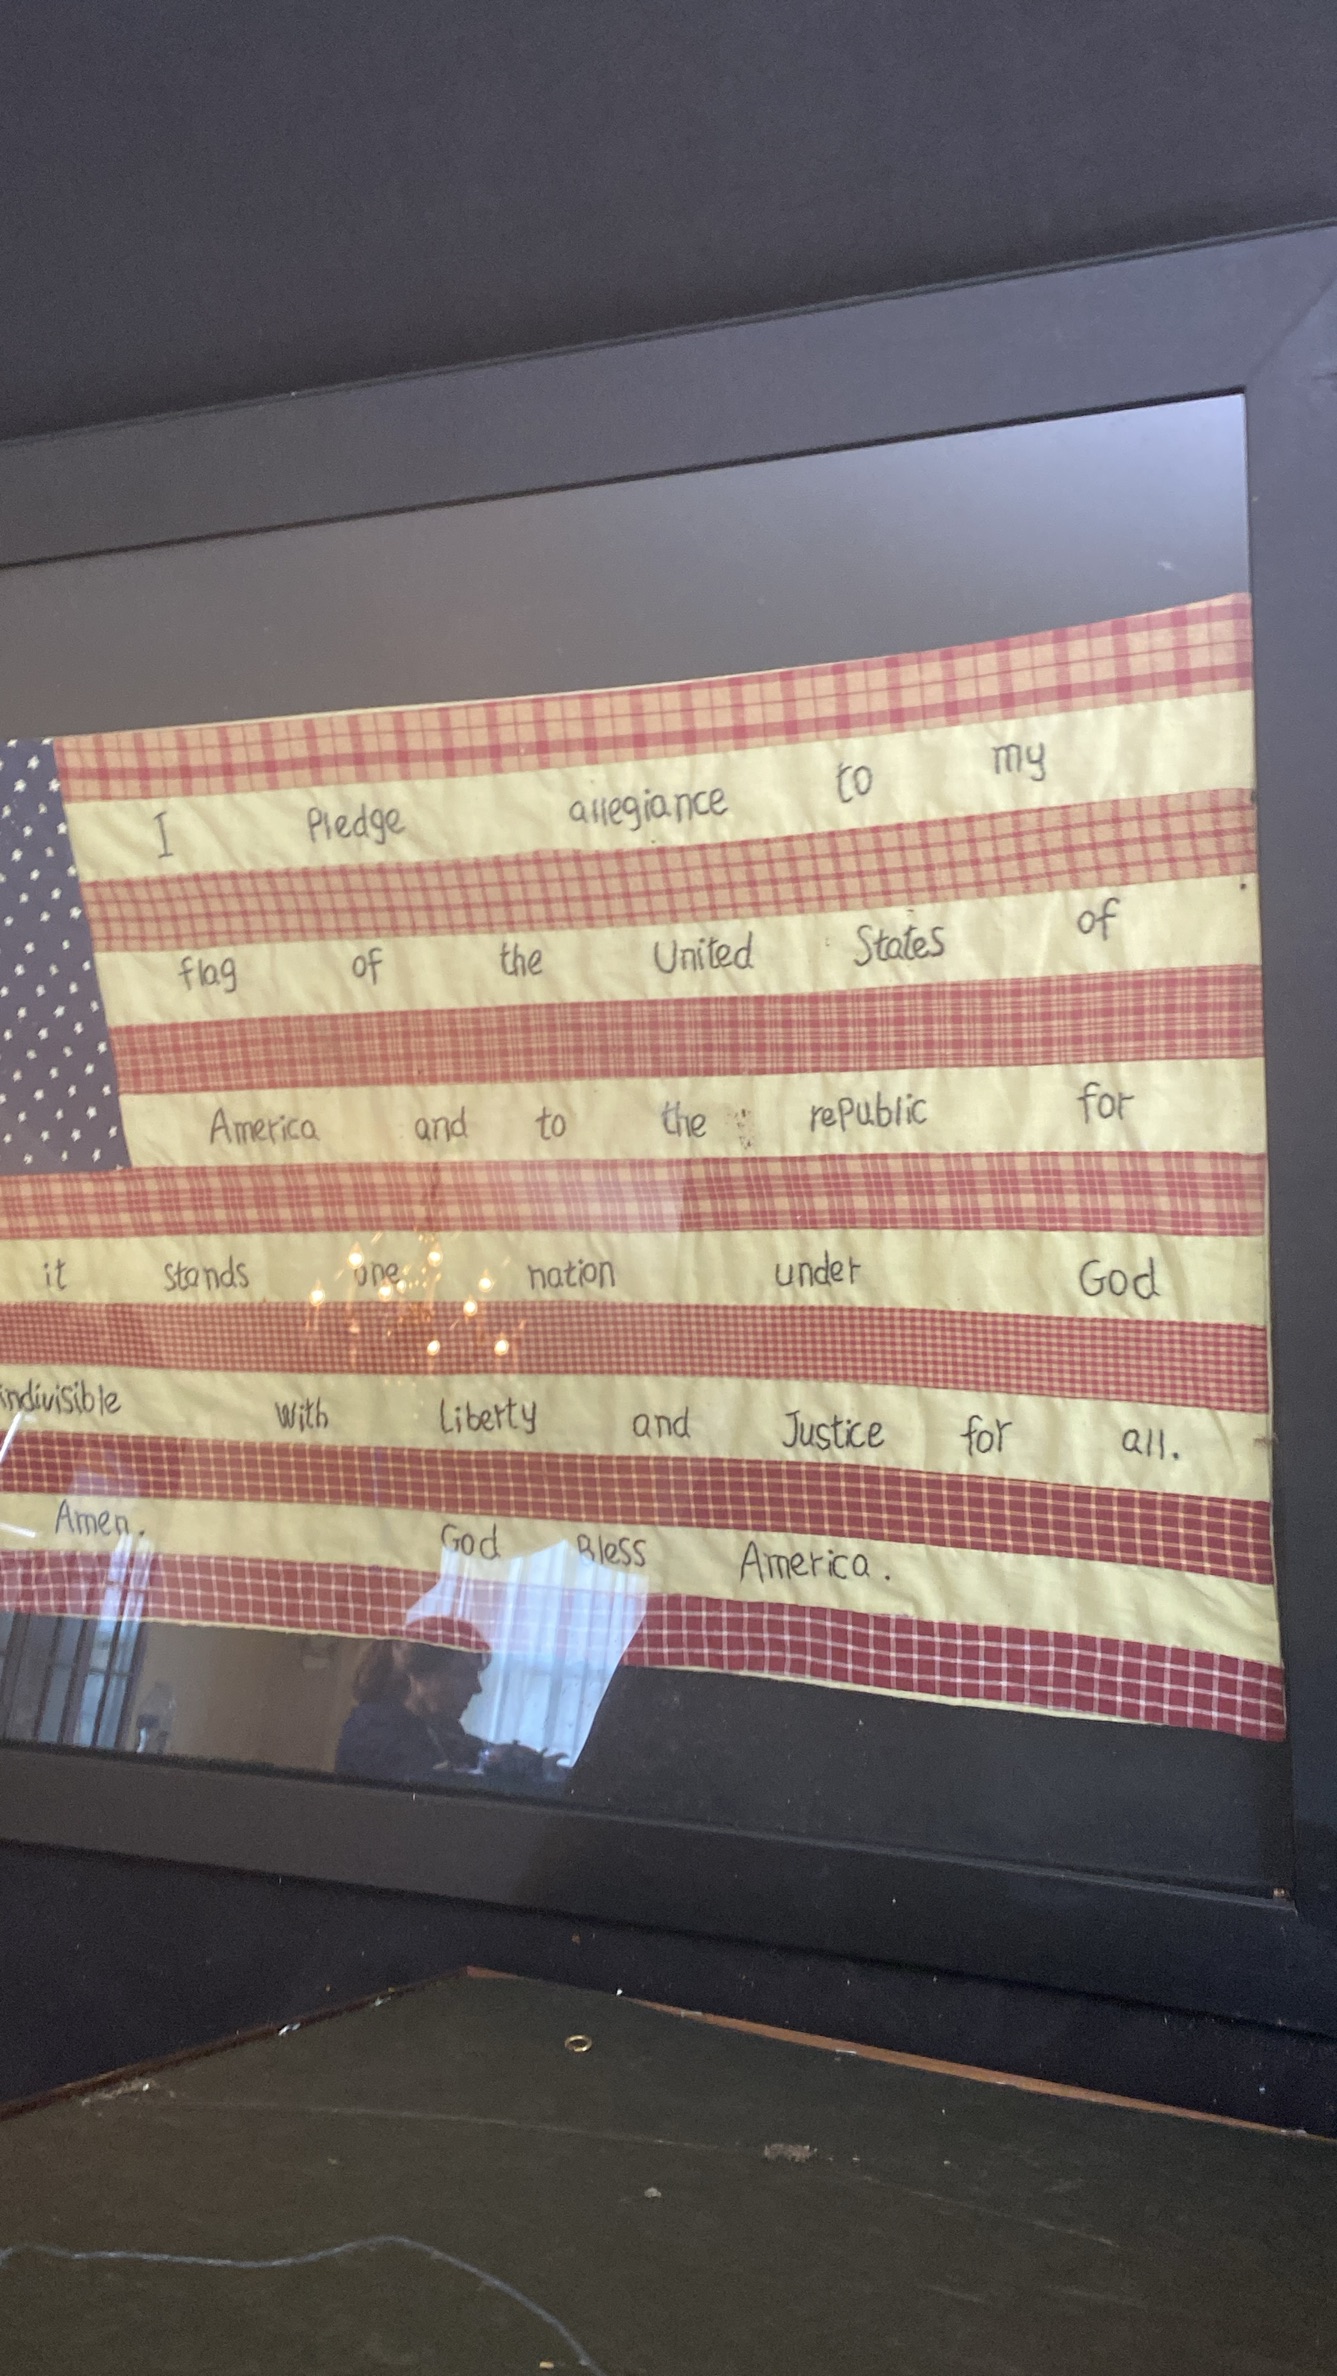 I Pledge allegiance to my
flag of the United States of
America and to the rePublic for
it stands one nation under God
indivisible with Liberty and Justice for all.
Amen. God Bless America.